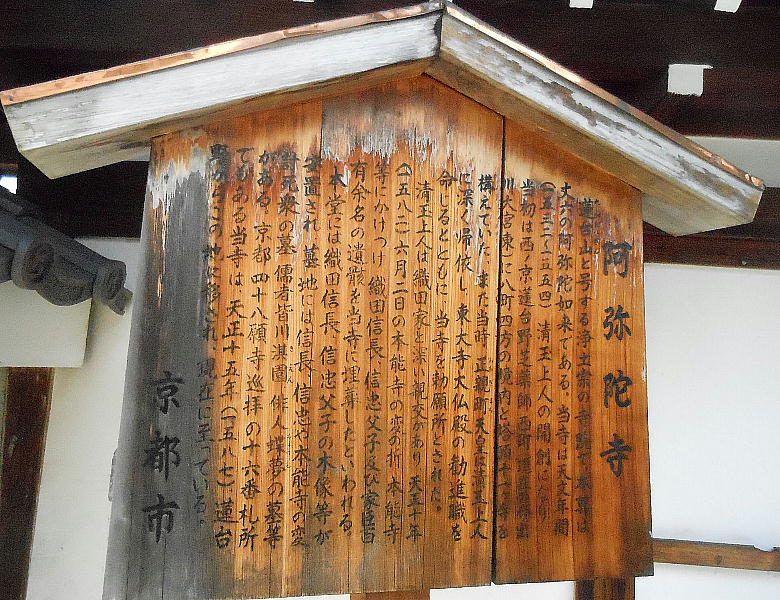 阿弥陀寺
蓮台山と号する浄土宗の寺院で、本尊は
丈六の阿弥陀如来である。当寺は天文年間
(一五三二〜一五五四)清玉上人の開創になり
当初は西ノ京蓮台野芝薬師西町
川大宮東)に八町四方の境内と塔頭十一ヶ寺を
構えていた。また当時、正親町天皇は清玉上人
に深く帰依し、東大寺大仏殿の勧進職を
命じるとともに、当寺を勅願所とされた。
清玉上人は織田家と深い親交があり、天正十年
(一五八二)六月二日の本能寺の変の折、本能寺
等にかけつけ、織田信長、信忠父子及び家臣百
有余名の遺骸を当寺に埋葬したといわれる。
本堂には織田信長、信忠父子の木像等が
安置され、墓地には信長、信忠や本能寺の変
討死衆の墓、儒者皆川淇園、俳人蝶夢の墓等
がある。京都四十八願寺巡拝の十六番札所
でもある当寺は、天正十五年(一五八七)蓮台
野からこの地に移され、現在に至っている。
京都市